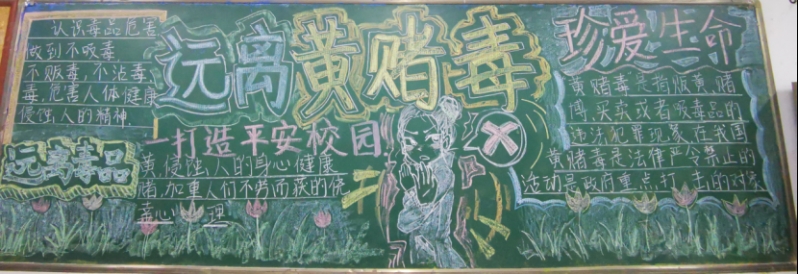 认识毒品危害
做到不吸毒、
不贩毒，不沾毒、
毒,危害人体健康
侵蚀人的精神
远离毒品
远离黄赌毒
一打造平安校园
黄,侵蚀人的身心健康
赌,加重人们不劳而获的侥
幸心理
珍爱生命
黄赌毒是指贩黄、赌
博、买卖或者吸毒品的
违法犯罪现象在我国
黄赌毒是法律严令禁止的
活动是政府重点打击的对象